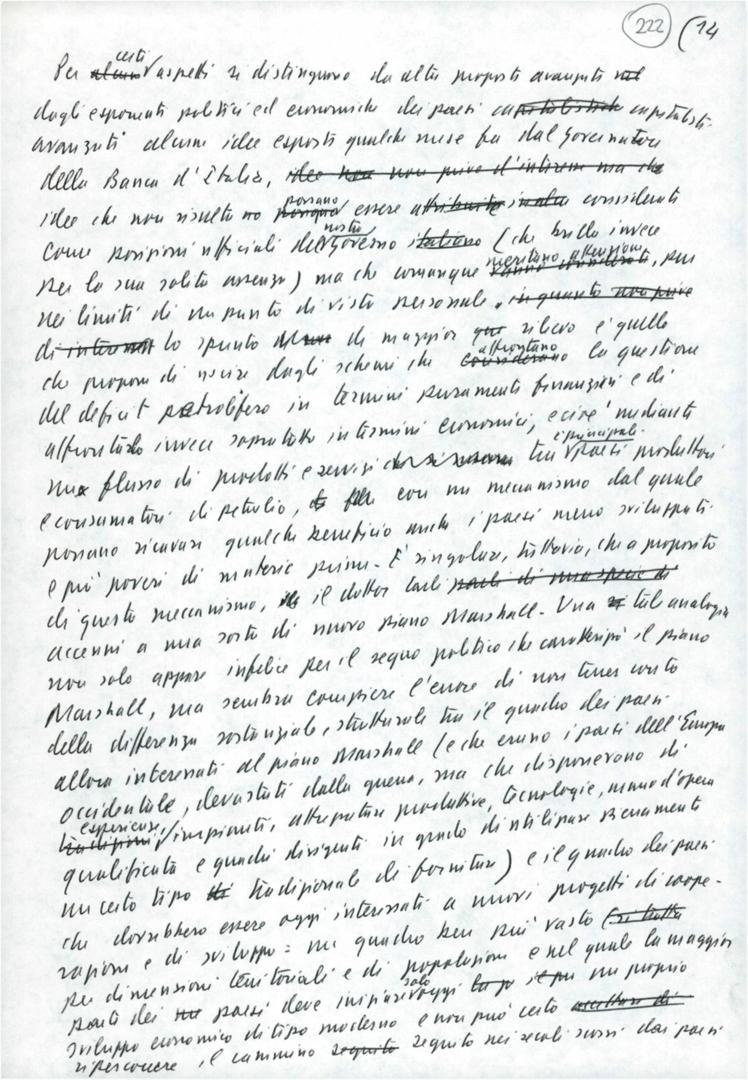 222 (14
Per certi aspetti si distinguono da altre proposte avanzate
dagli esponenti politici ed economiche dei paesi capitalisti
avanzati alcune idee esposti qualche mese fa dal Governatore
della Banca d'Italia, idee non prive d'interesse ma che
idee che non risulta no possano essere attribuite considerati
come posizioni ufficiali del nostro Governo italiano (che brilla invece
per la sua solita assenza) ma che comunque meritano attenzione, pur
nei limiti di un punto di vista personale. in quanto non prive
di interesse lo spunto di maggior rilievo è quello
che propone di uscire dagli schemi che affrontano considerano la questione
del deficit petrolifero in termini puramente finanziari e di
affrontarlo invece sopratutto in termini economici, e cioè mediante
un flusso di prodotti e servizi tra i principali paesi produttori
e consumatori di petrolio, con un meccanismo dal quale
possano ricavare qualche beneficio anche i paesi meno sviluppati
e più poveri di materie prime. È singolare, tuttavia, che a proposito
di questo meccanismo, il dottor Carli parli di una specie di
accenni a una sorta di nuovo piano Marshall. Una tale analogia
non solo appare infelice per il segno politico che caratterizzò il piano
Marshall, ma sembra compiere l'errore di non tener conto
della differenza sostanziale, strutturale tra il quadro dei paesi
allora interessati al piano Marshall (e che erano i paesi dell'Europa
occidentale, devastati dalla guerra, ma che disponevano di
tradizioni esperienze, impianti, attrezzature produttive, tecnologie, mano d'opera
qualificata e quadri dirigenti in grado di utilizzare pienamente
un certo tipo tradizionale di forniture) e il quadro dei paesi
che dovrebbero essere oggi interessati a nuovi progetti di coope-
razione e di sviluppo: un quadro ben più vasto (si tratta
per dimensioni territoriali e di popolazione e nel quale la maggior
parte dei paesi deve iniziare solo oggi un proprio
sviluppo economico di tipo moderno e non può certo
ripercorrere il cammino seguito seguito nei secoli scorsi dai paesi